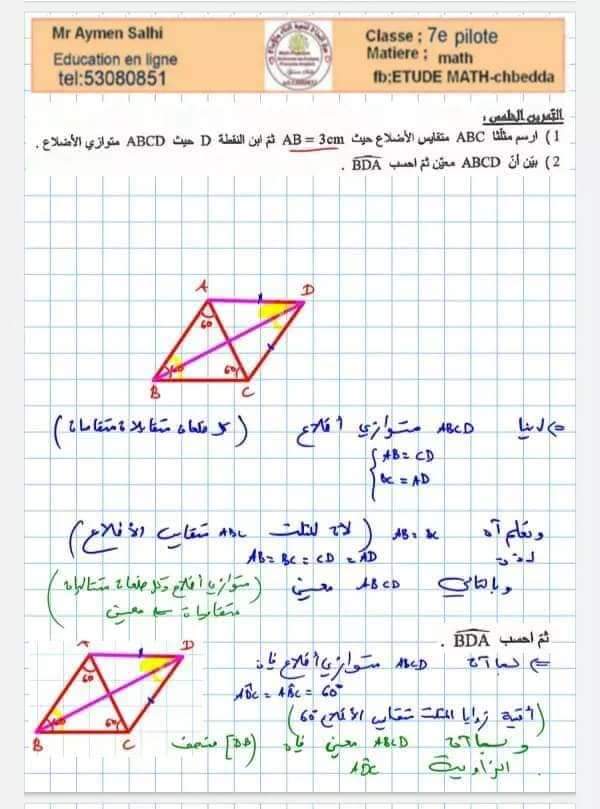 Mr Aymen Salhi
Education en ligne
tel:53080851
Classe ; 7e pilote
Matiere ; math
fb;ETUDE MATH-chbedda
التمرين الخامس :
1) ارسم مثلثا ABC متقايس الأضلاع حيث AB = 3cm ثم ابن النقطة D حيث ABCD متوازي الأضلاع .
2) بيّن أنّ ABCD معيّن ثم احسب BDA .
A D
60
60 60
B C
لدينا ABCD متوازي أضلاع (كل ضلعان متقابلان متقايسان)
AB = CD
BC = AD
ونعلم أن AB = BC (لأن المثلث ABC متقايس الأضلاع)
AB = BC = CD = AD
وبالتالي ABCD معين (متوازي أضلاع وكل ضلعان متتاليان
متقايسان معين)
ثم احسب BDA .
A D
60
60 60
B C
بما أن ABCD متوازي أضلاع فإن
ADC = ABC = 60°
(أقيسة زوايا المثلث متقايس الأضلاع 60)
وبما أن ABCD معين فإن [DB) منصف
الزاوية ADC